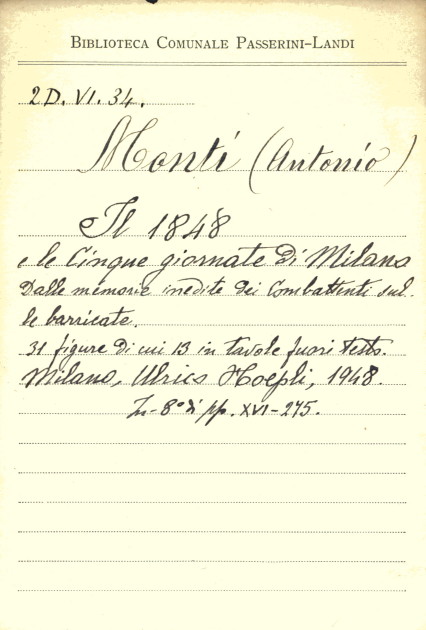 BIBLIOTECA COMUNALE PASSERINI-LANDI
2D. VI. 34.
Monti (Antonio)
Il 1848
e le Cinque giornate di Milano
Dalle memorie inedite dei Combattenti sul-
le barricate.
31 figure di cui 13 in tavole fuori testo.
Milano, Ulrico Hoepli, 1948.
In-8° di pp. XVI-275.